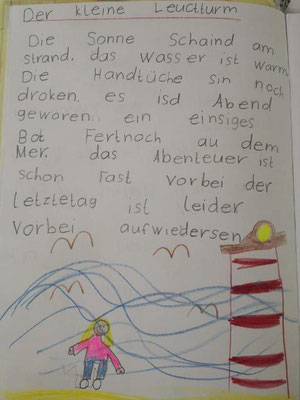 Der kleine Leuchturm
Die Sonne Schaind am
strand, das Wasser ist warm
Die Handtüche sin noch
droken. es isd Abend
geworen. ein einsiges
Bot Fertnoch au dem
Mer. das Abenteuer ist
schon Fast vorbei der
letztetag ist leider
vorbei aufwiedersen